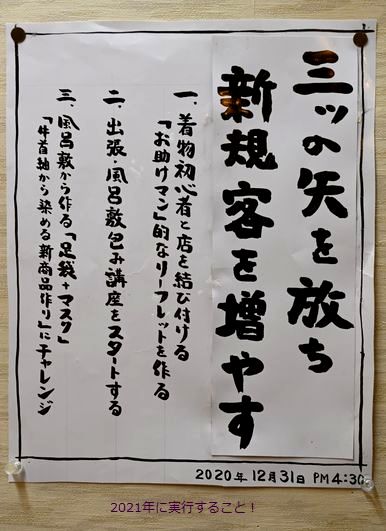 三ッの矢を放ち
新規客を増やす
一、着物初心者と店を結び付ける
「お助けマン」的なリーフレットを作る
二、出張・風呂敷包み講座をスタートする
三、風呂敷から作る「足袋+マスク」
「牛首紬から染める新商品作り」にチャレンジ
2020年12月31日 PM4:30
2021年に実行すること!